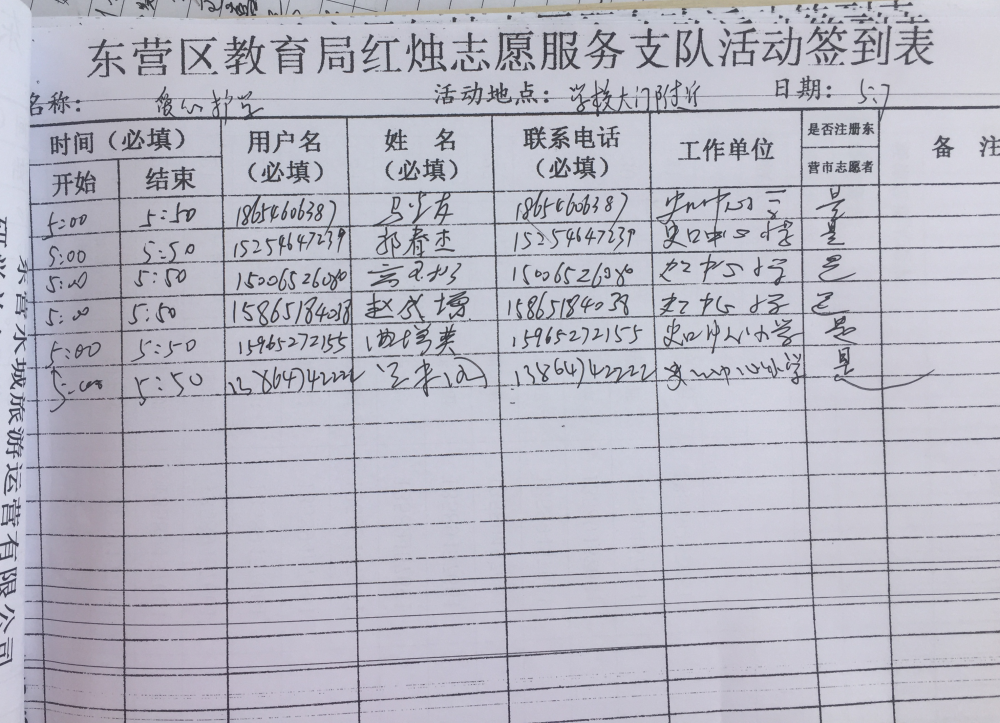 东营区教育局红烛志愿服务支队活动签到表
名称： 爱心护学 活动地点： 学校大门附近 日期： 5.7
时间（必填） 用户名（必填） 姓 名（必填） 联系电话（必填） 工作单位 是否注册东营市志愿者 备 注
开始 结束
5:00 5:50 18654606387 18654606387 是
5:00 5:50 15254647239 郭春杰 15254647239 史口中心小学 是
5:00 5:50 15006526080 15006526080 史口中心小学 是
5:00 5:50 15865184038 赵武增 15865184038 史口中心小学 是
5:00 5:50 15965272155 15965272155 史口中心小学 是
5:00 5:50 13864742222 13864742222 史口中心小学 是
东营水城旅游运营有限公司